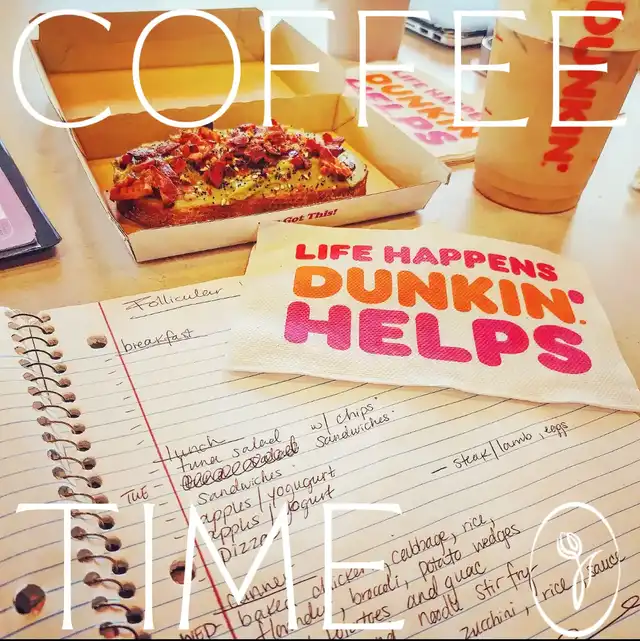 COFFEE
DUNKIN'
LIFE HAPPENS
DUNKIN'
HELPS
Got This!
LIFE HAPPENS
DUNKIN'
HELPS
Follicular
breakfast
lunch
tuna salad w/ chips
Sandwiches
- steak/lamb, eggs
TUE
sandwiches
apples/yogugurt
apples/yogurt
pizza
TIME
dinner
WED
baked chicken, cabbage, rice,
broccoli, potato wedges
and guac
noodle stir fry
zucchini, rice, sauce